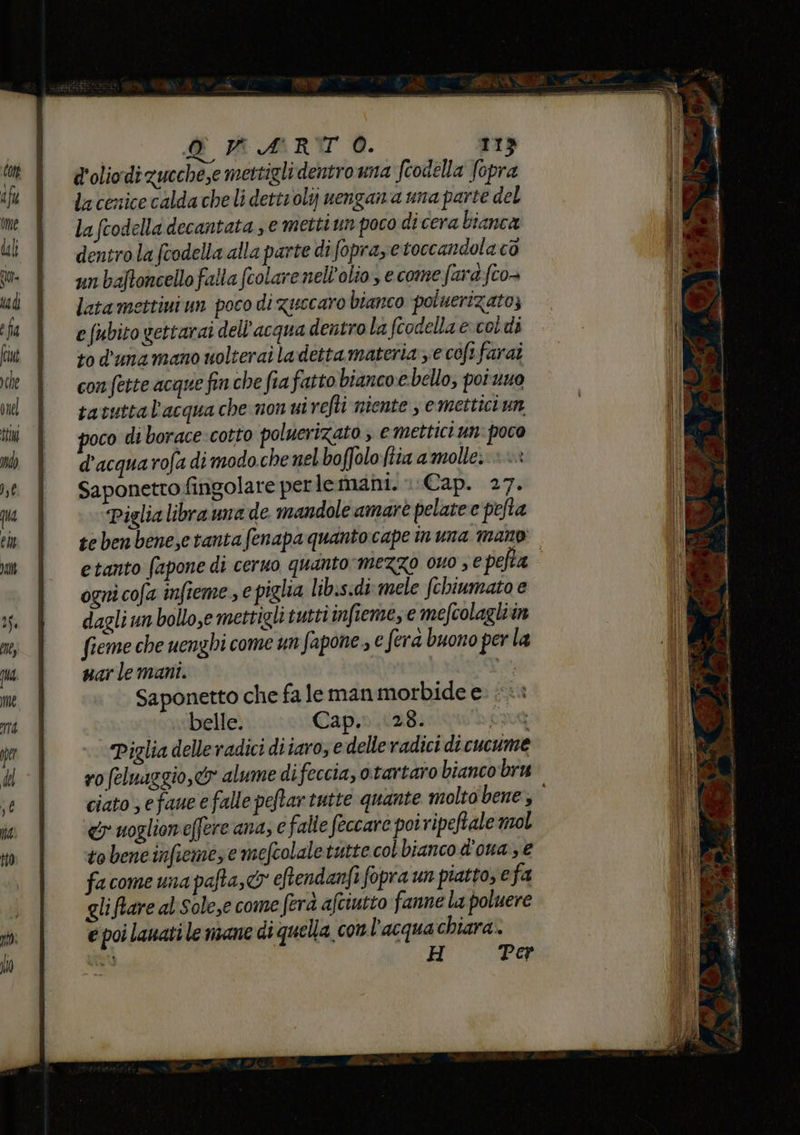 Q V A R T O. 113
d'olio di zucche, e mettigli dentro una ſcodella ſopra
la cenice calda che li detti olij uengan'a una parte del
la ſcodella decantata, e metti un poco di cera bianca
dentro la ſcodella alla parte di ſopra, e toccandola cō
un baſtoncello falla ſcolare nell'olio, e come ſarà ſco-
lata mettiui un poco di zuccaro bianco poluerizato;
e ſubito gettarai dell'acqua dentro la ſcodella e col di
to d'una mano uolterai la detta materia, e coſi farai
con ſette acque fin che ſia fatto bianco e bello, poi uuo
ta tutta l'acqua che non ui reſti niente, e mettici un
poco di borace cotto poluerizato, e mettici un poco
d'acqua roſa di modo che nel boſſolo ſtia a molle.
Saponetto ſingolare per le mani. Cap. 27.
Piglia libra una de mandole amare pelate e peſta
te ben bene, e tanta ſenapa quanto cape in una mano
e tanto ſapone di ceruo quanto mezzo ouo, e peſta
ogni coſa inſieme, e piglia lib.s. di mele ſchiumato e
dagli un bollo, e mettigli tutti inſieme, e meſcolagli in
ſieme che uenghi come un ſapone, e ſerà buono per la
uar le mani.
Saponetto che fa le man morbide e
belle. Cap. 28.
Piglia delle radici di iaro, e delle radici di cucume
ro ſeluaggio, & alume di feccia, o tartaro bianco bru
ciato, e faue e falle peſtar tutte quante molto bene,
& uoglion eſſere ana, e falle ſeccare poi ripeſtale mol
to bene inſieme, e meſcolale tutte col bianco d'oua, e
fa come una paſta, & eſtendanſi ſopra un piatto, e fa
gli ſtare al Sole, e come ſerà aſciutto fanne la poluere
e poi lauati le mane di quella con l'acqua chiara.
H Per